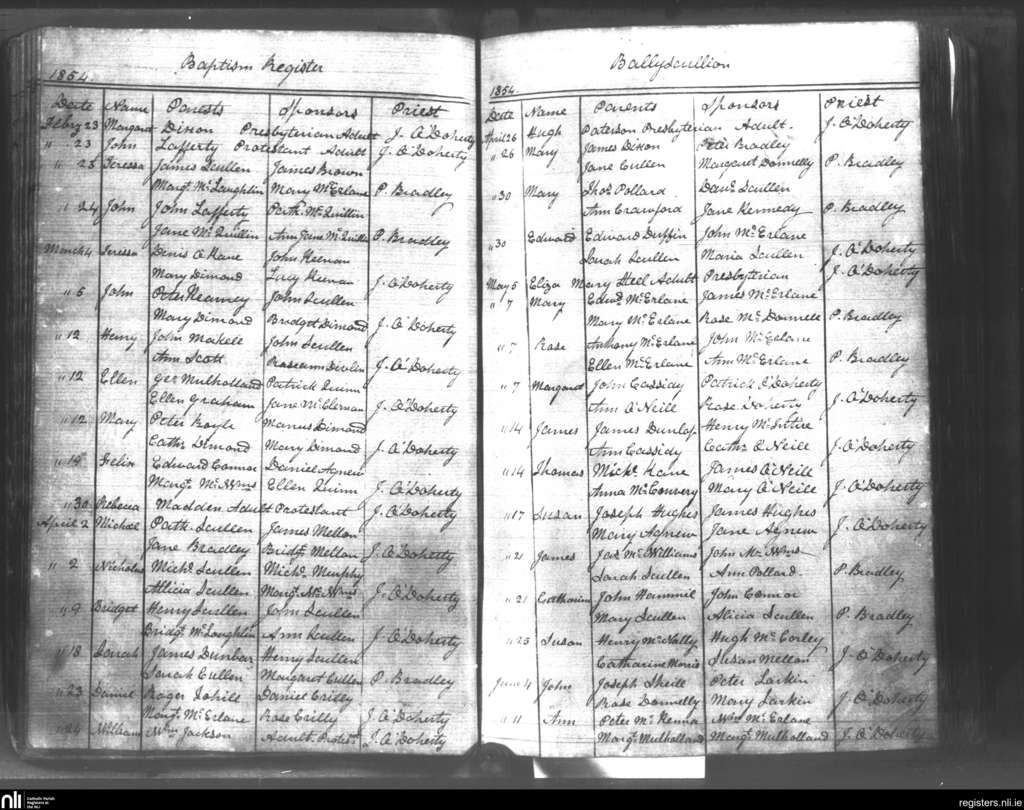 Baptism Register
1854.
Date Name Parents Sponsors Priest
Febry 23 Margaret Dixon Presbyterian Adult J. O'Doherty
" 23 John Lafferty Protestant Adult J. O'Doherty
" 23 Teressa James Scullen James Brown
Margt. McLaughlin Mary McErlane P. Bradley
" 24 John John Lafferty Patk. McQuillin
Jane McQuillin Ann Jane McQuillin P. Bradley
March 4 Teressa Denis O Kane John Keenan
Mary Dimond Lucy Keenan J. O'Doherty
" 5 John Peter Kearney John Scullen
Mary Dimond Bridget Dimond J. O'Doherty
" 12 Henry John Makele John Scullen
Ann Scott Roseann Devlin J. O'Doherty
" 12 Ellen Geo Mulholland Patrick Quinn
Ellen Graham Jane McClernan J. O'Doherty
" 12 Mary Peter Boyle Manus Dimond
Cathe Dimond Mary Dimond J. O'Doherty
" 19 Felix Edward Connor Daniel Agnew
Margt. McWms Ellen Quinn J. O'Doherty
" 30 Rebecca Madden Adult Protestant J. O'Doherty
April 2 Michael Patk. Scullen James Mellon
Jane Bradley Bridgt Mellon J. O'Doherty
" 2 Nicholas Michl. Scullen Michl. Murphy
Allicia Scullen Margt. McWms J. O'Doherty
" 9 Bridget Henry Scullen John Scullen
Bridgt. McLoughlin Ann Scullen J. O'Doherty
" 18 Sarah James Dunbar Henry Scullen
Sarah Cullen Margaret Cullen P. Bradley
" 23 Daniel Roger Cahill Daniel Crilly
Margt. McErlane Rose Crilly J. O'Doherty
" 24 William Wm Jackson Adult Protest J. O'Doherty
Ballyscullion
1854.
Date Name Parents Sponsors Priest
April 26 Hugh Paterson Presbyterian Adult. J. O'Doherty
" 26 Mary James Dixon Peter Bradley
Jane Cullen Margaret Donnelly P. Bradley
" 30 Mary Thos. Pollard Danl. Scullen
Ann Crawford Jane Kennedy P. Bradley
" 30 Edward Edward Duffin John McErlane
Sarah Scullen Maria Scullen J. O'Doherty
May 5 Eliza Mary Steel Adult Presbyterian J. O'Doherty
" 7 Mary Edwd. McErlane James McErlane
Mary McErlane Rose McDonnell P. Bradley
" 7 Rose Anthony McErlane John McErlane
Ellen McErlane Ann McErlane P. Bradley
" 7 Margaret John Cassidy Patrick O'Doherty
Ann O'Neill Rose Doherty J. O'Doherty
" 14 James James Dunlop Henry McIntire
Ann Cassidy Cathe O'Neill J. O'Doherty
" 14 Thomas Michl. Kane James O'Neill
Anna McConvery Mary O'Neill J. O'Doherty
" 17 Susan Joseph Hughes James Hughes
Mary Agnew Jane Agnew J. O'Doherty
" 21 James Jas. McWilliams John McWms
Sarah Scullen Ann Pollard. P. Bradley
" 21 Catharine John Hammil John Connor
Mary Scullen Alicia Scullen P. Bradley
" 25 Susan Henry McNally Hugh McCorley
Catharine Morris Susan Mellon J. O'Doherty
June 4 John Joseph Skeill Peter Larkin
Rose Donnelly Mary Larkin J. O'Doherty
" 11 Ann Peter McKenna Wm McErlane
Margt. Mulholland Margt. Mulholland J. O'Doherty
nli Catholic Parish
Registers at
the NLI
registers.nli.ie